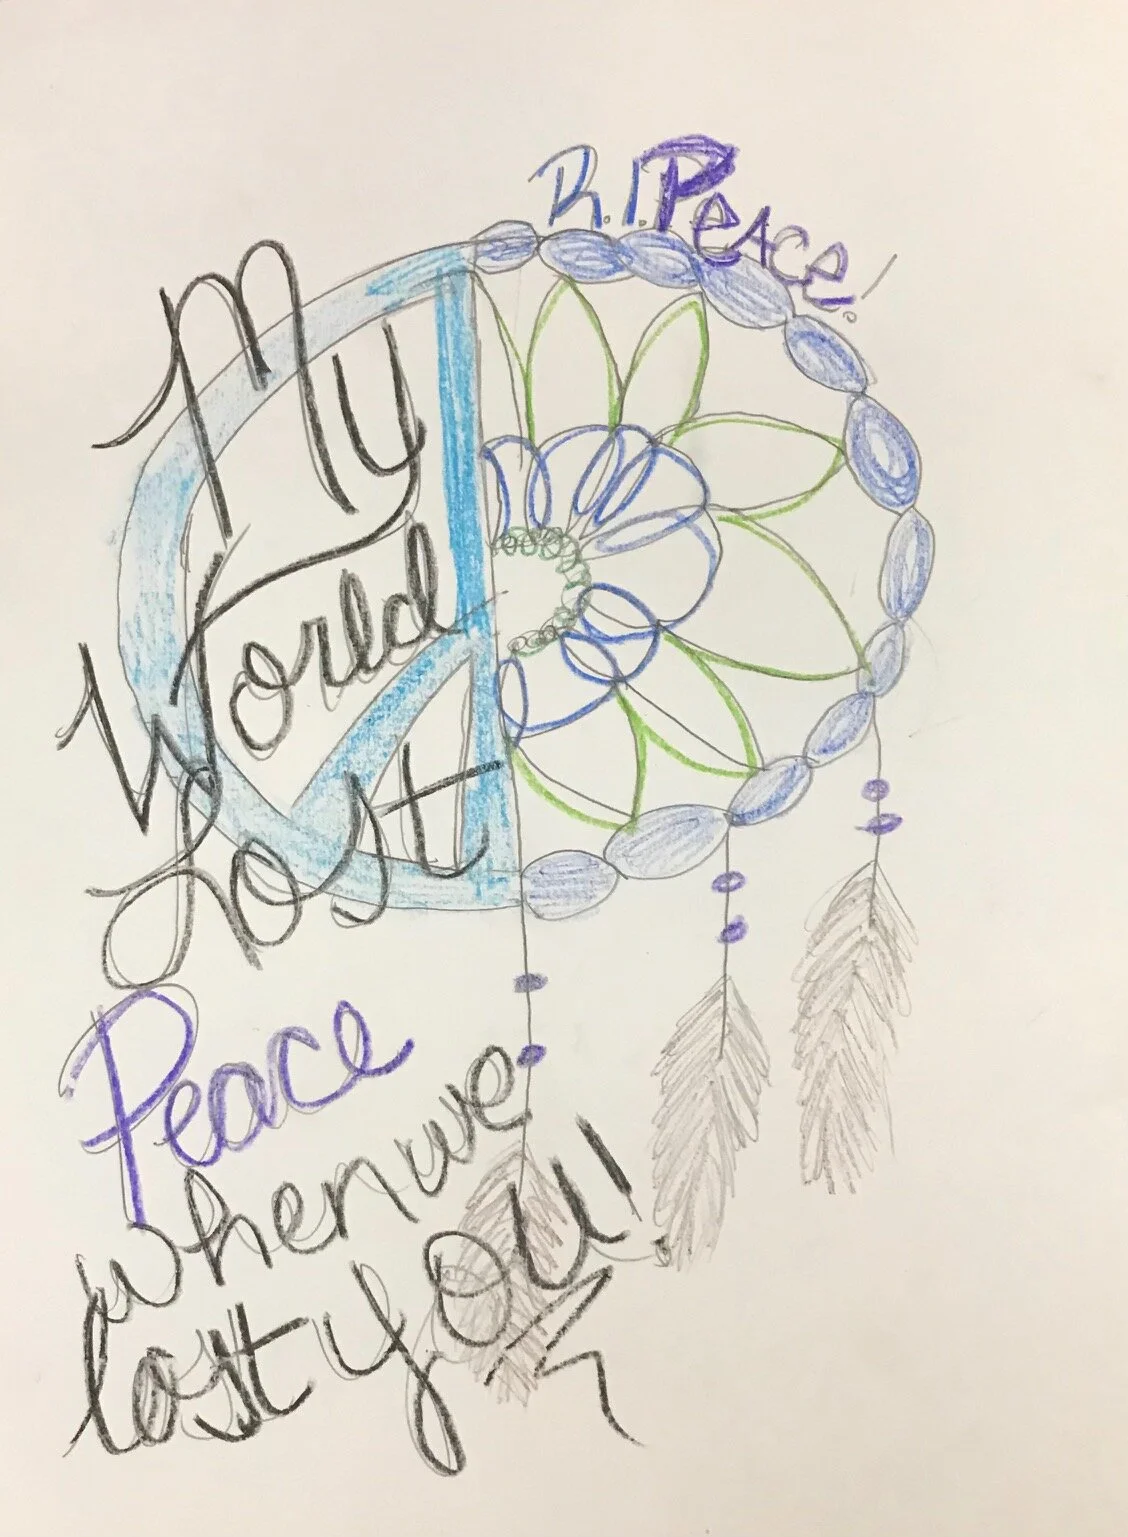 R.I.Peace!
My
World
Lost
Peace
when we
lost you!